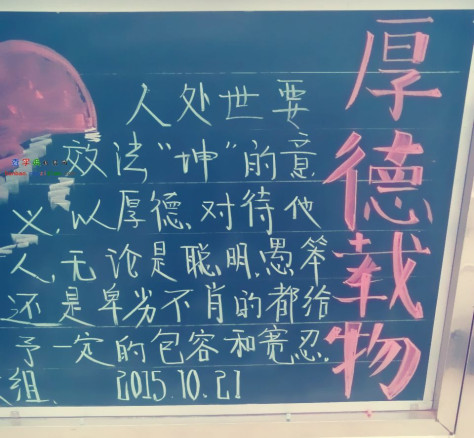 厚德载物
人处世要
效法“坤”的意
义,以厚德对待他
人,无论是聪明、愚笨
还是卑劣不肖的都给
予一定的包容和宽忍.
组. 2015.10.21